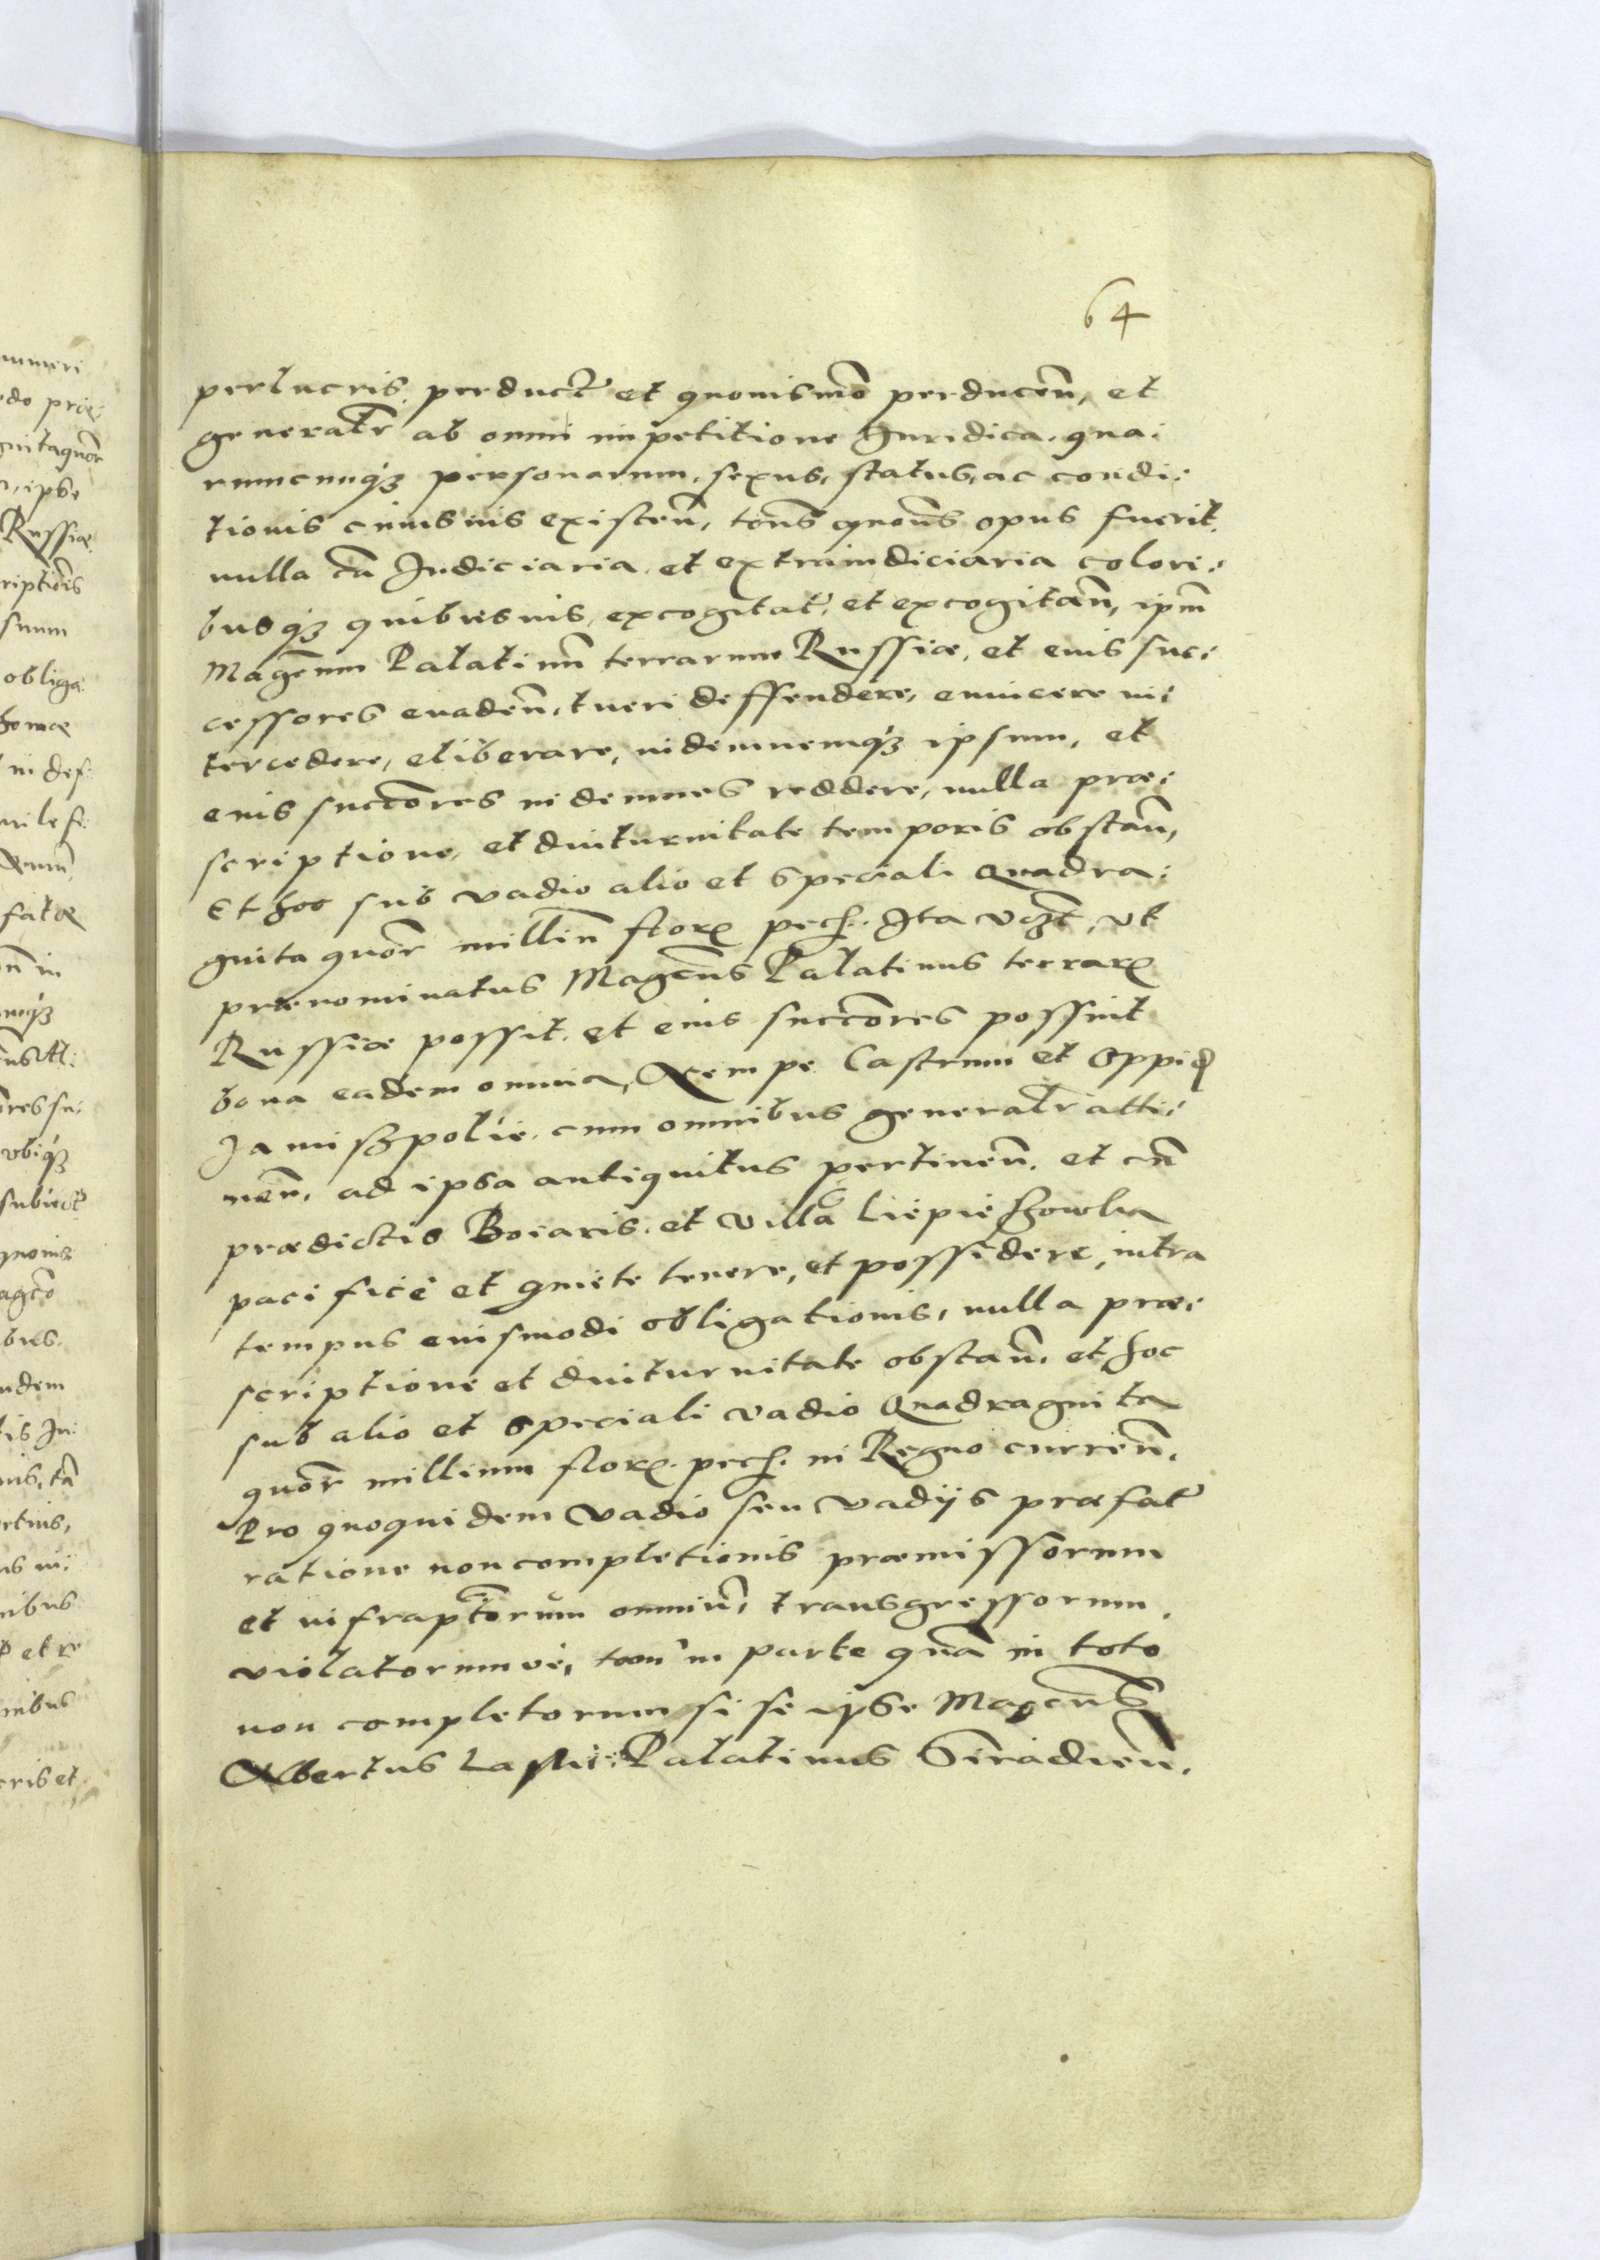 64
perlucris, perduct et quovismo perducen, et
generalr ab omni impetitione Juridica, qua:
rumcunqz personarum, sexus, status, ac condi:
tionis cuiusvis existen, totiens quotiens opus fuerit,
nulla ca Judiciaria et extraiudiciaria colori:
busqz quibusvis excogitat, et excogitan, ipm
Magcum Palatinu terrarum Russiæ, et eius suc:
cessores evaden, tueri deffendere, evincere in:
tercedere, eliberare, indemnemqz ipsum, et
eius succores indemnes reddere, nulla præ:
scriptione, et diuturnitate temporis obstan,
Et hoc sub vadio alio et speciali Quadra:
ginta quor milliu flor pech. Ita vgt, vt
prænominatus Magcus Palatinus terrar
Russiæ possit, et eius succores possint
bona eadem omnia, Nempe Castrum et Oppid
Januszpolie, cum omnibus generalr atti:
nen, ad ipsa antiquitus pertinen, et cu
prædictis Boiaris, et Villa Liepieszowka
pacifice et quiete tenere, et possidere, intra
tempus euismodi obligationis, nulla præ:
scriptione et diuturnitate obstan, et hoc
sub alio et speciali vadio Quadraginta
quor millium flor. pech. in Regno curren.
Pro quoquidem Vadio seu Vadijs præfat
ratione non completionis præmissorum
et infraptorum omniu, transgressorum,
violatorumve, tam in parte qua in toto
non completorum si se ipse Magcus
Albertus Laski: Palatinus Siradien,
numeri
Russiæ
suum
obliga
in def:
fatæ
vbiqz
ndem
tis Ju:
nibus
et re
nibus
eris et